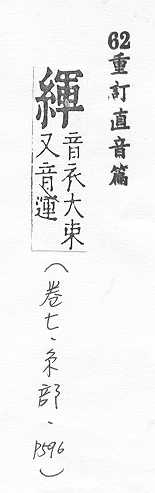 62重訂直音篇
緷
音衮大束
又音運
（卷七·糸部·P596）